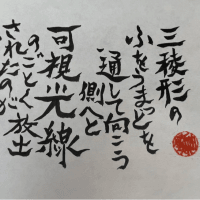 三稜形の
ふをうまっとを
通して向こう
側へと
可視光線
のごとく放出
されたのが